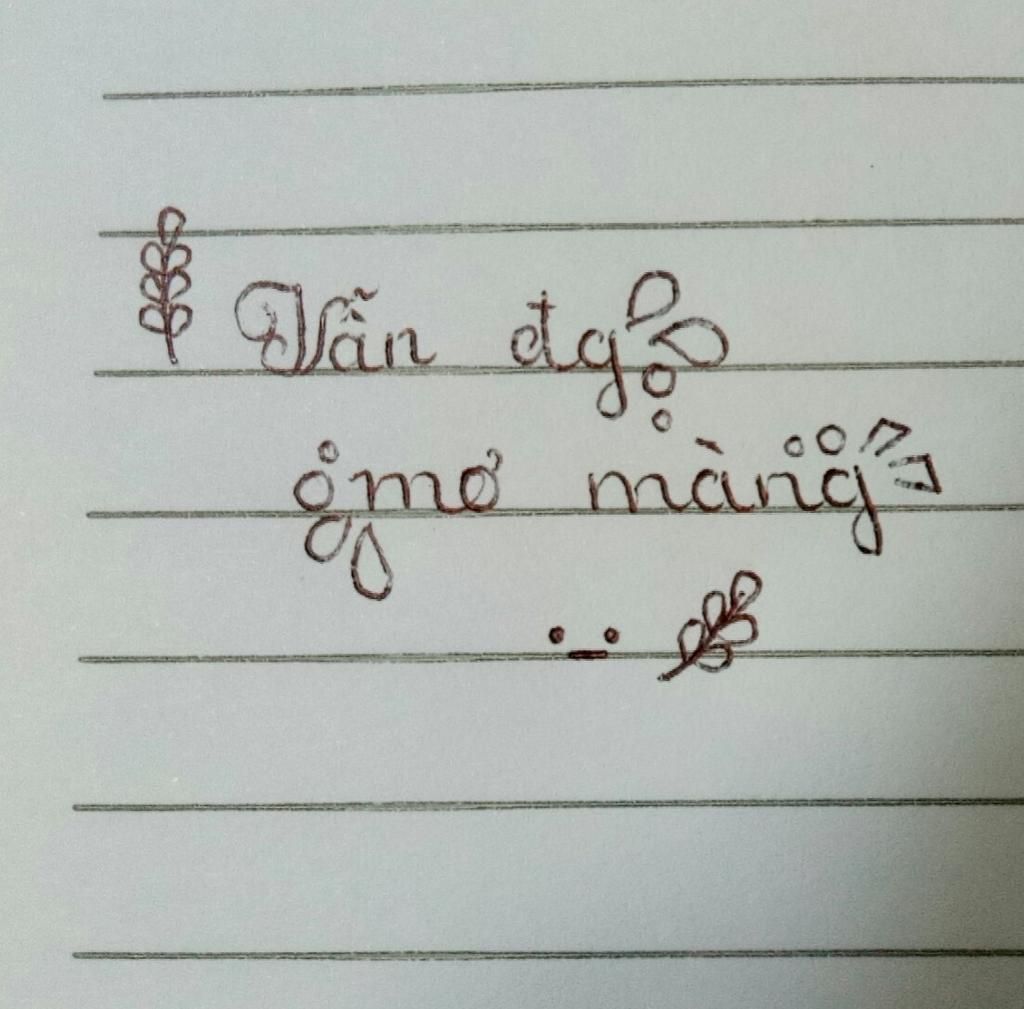 Vẫn đg
mơ màng